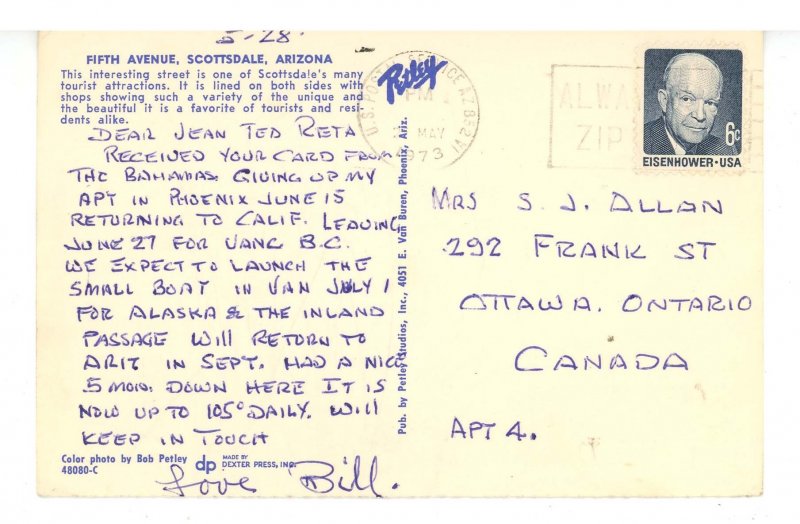 5-28
FIFTH AVENUE, SCOTTSDALE, ARIZONA
This interesting street is one of Scottsdale's many
tourist attractions. It is lined on both sides with
shops showing such a variety of the unique and
the beautiful it is a favorite of tourists and resi-
dents alike.
DEAR JEAN TED RETA
RECEIVED YOUR CARD FROM
THE BAHAMAS. GIVING UP MY
APT IN PHOENIX JUNE 15
RETURNING TO CALIF. LEAVING
JUNE 27 FOR VANC B.C.
WE EXPECT TO LAUNCH THE
SMALL BOAT IN VAN JULY 1
FOR ALASKA & THE INLAND
PASSAGE WILL RETURN TO
ARIZ IN SEPT. HAD A NICE
5 MOS. DOWN HERE IT IS
NOW UP TO 105° DAILY. WILL
KEEP IN TOUCH
Love Bill.
Color photo by Bob Petley
48080-C
dp MADE BY
DEXTER PRESS, INC.
Pub. by Petley Studios, Inc., 4051 E. Van Buren, Phoenix, Ariz.
Petley
U.S. POSTAL SERVICE AZ 852
PM
MAY
1973
ALWA
ZIP
6c
EISENHOWER·USA
MRS S. J. ALLAN
292 FRANK ST
OTTAWA. ONTARIO
CANADA
APT 4.